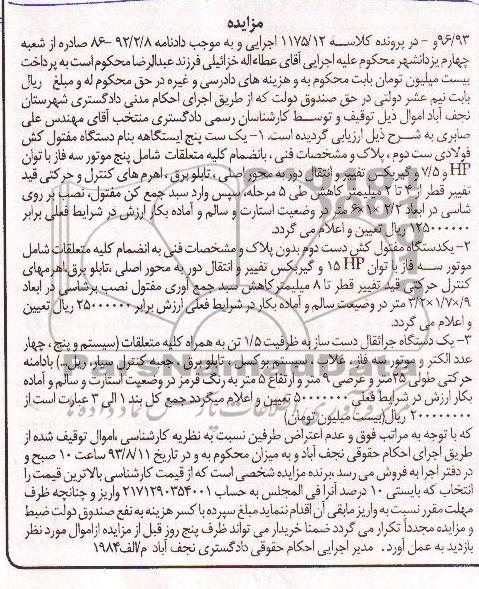 مزایده
۹۶/۹۳و – در پرونده کلاسه ۱۱۷۵/۱۲ اجرایی و به موجب دادنامه ۹۲/۲/۸ –۸۶ صادره از شعبه
چهارم یزدانشهر محکوم علیه اجرایی آقای عطاءاله خزائیلی فرزند عبدالرضا محکوم است به پرداخت
بیست میلیون تومان بابت محکوم به و هزینه های دادرسی و غیره در حق محکوم له و مبلغ ریال
بابت نیم عشر دولتی در حق صندوق دولت که از طریق اجرای احکام مدنی دادگستری شهرستان
نجف آباد اموال ذیل توقیف و توسط کارشناسان رسمی دادگستری منتخب آقای مهندس علی
صابری به شرح ذیل ارزیابی گردیده است. ۱– یک ست پنج ایستگاهه بنام دستگاه مفتول کش
فولادی ست دوم ، پلاک و مشخصات فنی ، بانضمام کلیه متعلقات شامل پنج موتور سه فاز با توان
HP ۷/۵ و گیربکس تغییر و انتقال دور به محور اصلی ، تابلو برق ، اهرم های کنترل و حرکتی قید
تغییر قطر از ۴ تا ۲ میلیمتر کاهش طی ۵ مرحله، سپس وارد سبد جمع کن مفتول، نصب بر روی
شاسی در ابعاد ۲/۲×۱×۶ متر در وضعیت استارت و سالم و آماده بکار ارزش در شرایط فعلی برابر
۱۲۵۰۰۰۰۰۰ ریال تعیین و اعلام می گردد.
۲– یکدستگاه مفتول کش دست دوم بدون پلاک و مشخصات فنی به انضمام کلیه متعلقات شامل
موتور سه فاز با توان HP ۱۵ و گیربکس تغییر و انتقال دور به محور اصلی ،تابلو برق،اهرمهای
کنترل حرکتی قید تغییر قطر تا ۸ میلیمتر کاهش سبد جمع آوری مفتول نصب برشاسی در ابعاد
۲/۲×۱/۷×۰/۹ متر در وضیعت سالم و آماده بکار در شرایط فعلی ارزش برابر ۲۵۰۰۰۰۰۰ ریال تعیین
و اعلام می گردد.
۳– یک دستگاه جراثقال دست ساز به ظرفیت ۱/۵ تن به همراه کلیه متعلقات (سیستم و پنج ، چهار
عدد الکتر و موتور سه فاز، غلاب ، سیستم بوکسل ، تابلو برق ، جعبه کنترل سیار، ریل..) بادامنه
حرکتی طولی ۲۵متر و عرضی ۹ متر و ارتفاع ۵ متر به رنگ قرمز در وضعیت استارت و سالم و آماده
بکار ارزش در شرایط فعلی ۵۰۰۰۰۰۰۰ تعیین و اعلام میگردد جمع کل بند ۱ الی ۳ عبارت است از
۲۰۰۰۰۰۰۰۰ ریال(بیست میلیون تومان)
که با توجه به مراتب فوق و عدم اعتراض طرفین نسبت به نظریه کارشناسی ،اموال توقیف شده از
طریق اجرای احکام حقوقی نجف آباد و به میزان محکوم به و در تاریخ ۹۳/۸/۱۱ ساعت ۱۰ صبح و
در دفتر اجرا به فروش می رسد،برنده مزایده شخصی است که از قیمت کارشناسی بالاترین قیمت را
انتخاب که بایستی ۱۰ درصد آنرا فی المجلس به حساب ۲۱۷۱۲۹۰۳۵۴۰۰۱ واریز و چنانچه ظرف
مهلت مقرر نسبت به واریز مابقی آن اقدام ننماید مبلغ سپرده با کسر هزینه به نفع صندوق دولت ضبط
و مزایده مجدداً تکرار می گردد ضمناً خریدار می تواند ظرف پنج روز قبل از مزایده ازاموال مورد نظر
بازدید به عمل آورد. مدیر اجرایی احکام حقوقی دادگستری نجف آباد م/الف۱۹۸۴
ParsNamadData